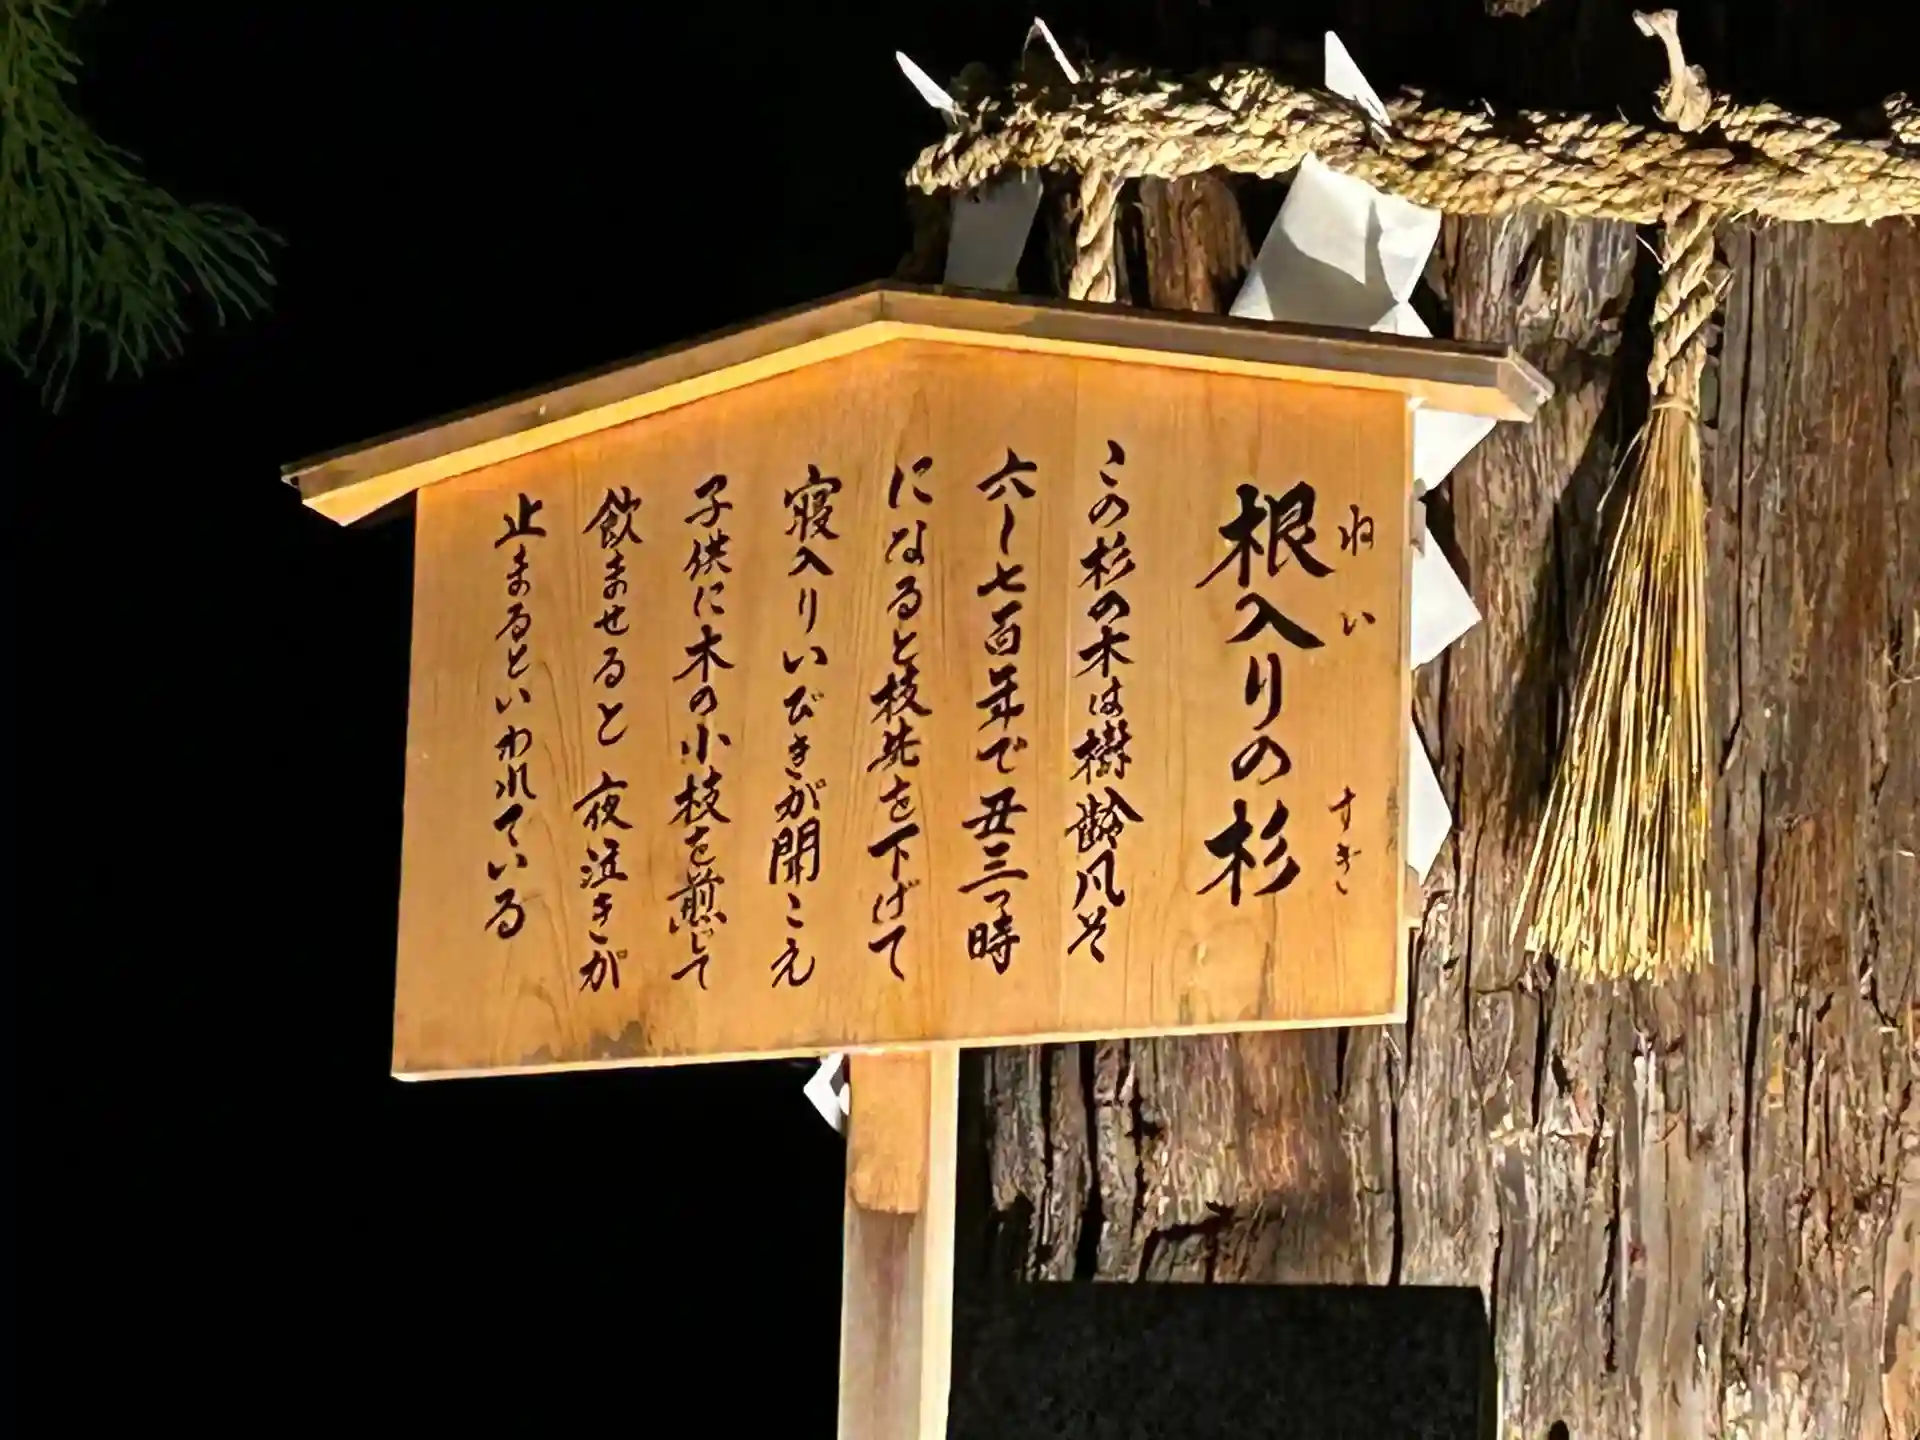 根入りの杉
ねい すぎ
この杉の木は樹齢凡そ
六〜七百年で丑三つ時
になると枝先を下げて
寝入りいびきが聞こえ
子供に木の小枝を煎じて
飲ませると夜泣きが
止まるといわれている